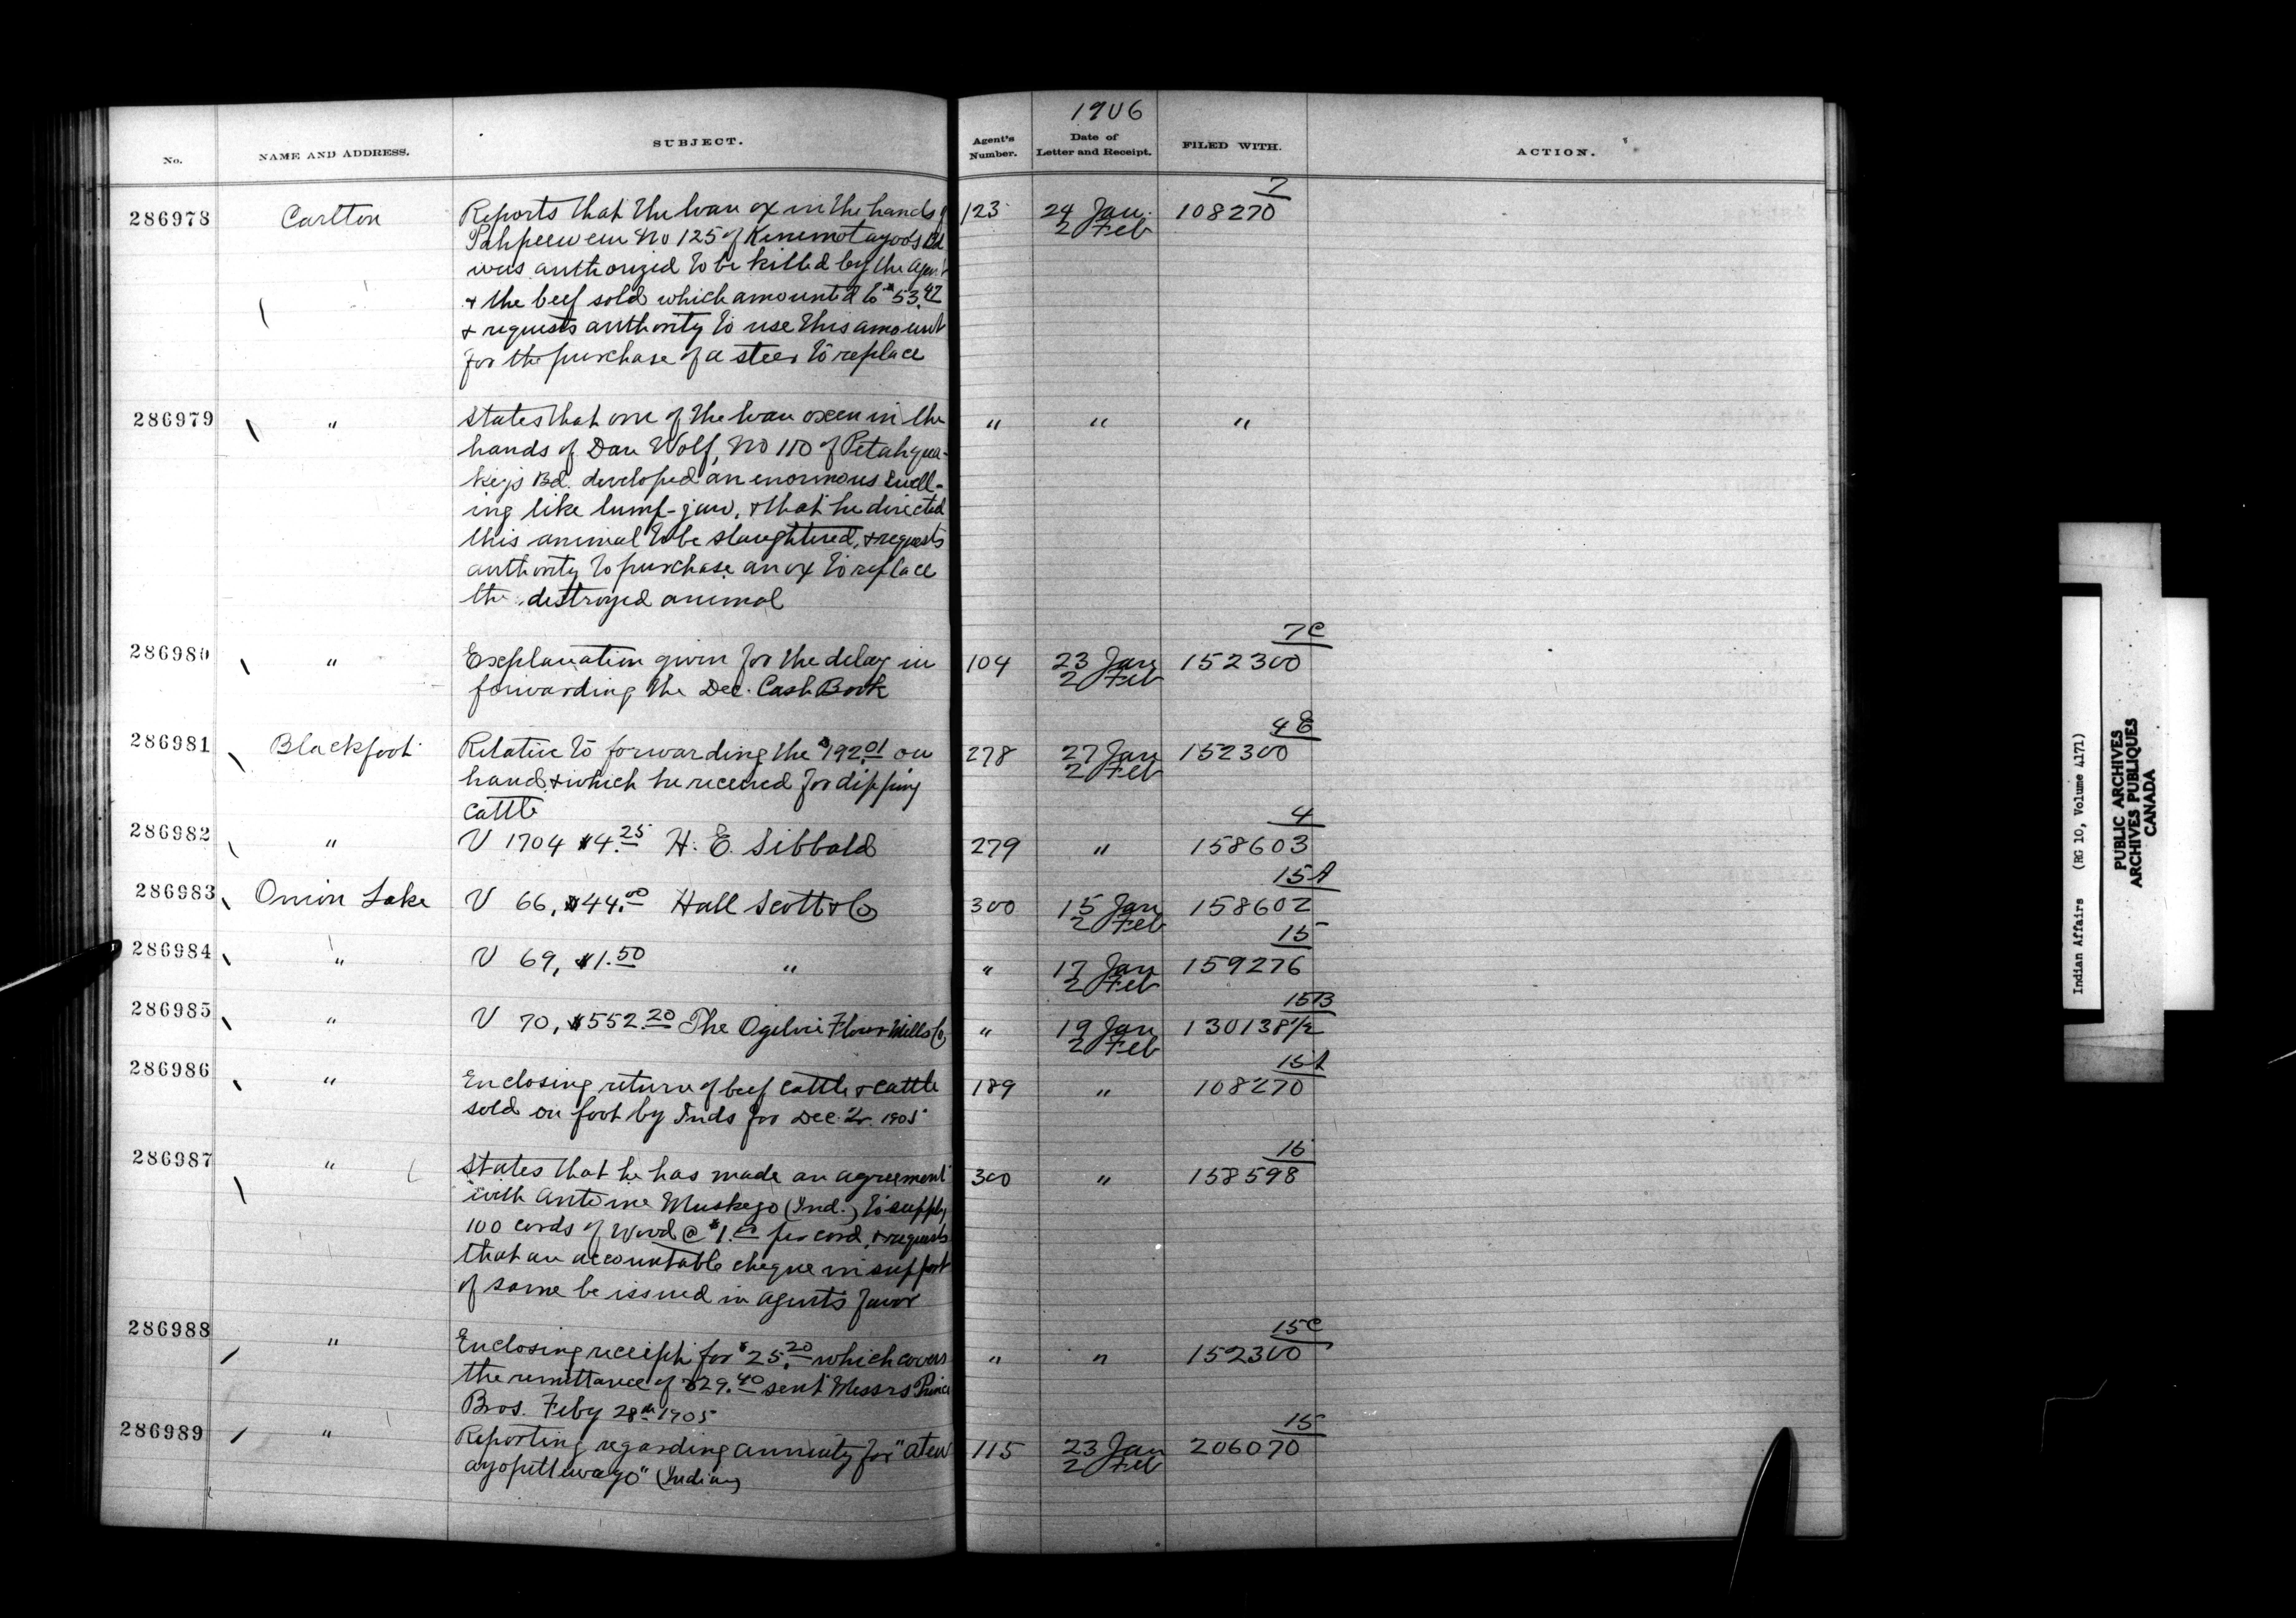 1906
No. NAME AND ADDRESS. SUBJECT. Agent's Number. Date of Letter and Receipt. FILED WITH. ACTION.
7
286978 Carlton Reports that the loan ox in the hands of 123 24 Jan. 108270
2 Feb
No 125 of Bd
was authorized to be killed by the Agent
+ the beef sold which amounted to $53.42
+ requests authority to use this amount
for the purchase of a steer to replace
286979 " States that one of the loan oxen in the " " "
hands of Dan Wolf, No 110 of Petahqua-
key's Bd. developed an enormous swell-
ing like lump-jaw, + that he directed
this animal to be slaughtered, + requests
authority to purchase an ox to replace
the destroyed animal
7C
286980 " Explanation given for the delay in 104 23 Jan 152300
forwarding the Dec. Cash Book 2 Feb
4E
286981 Blackfoot Relative to forwarding the $192.01 on 278 27 Jan 152300
hand + which he received for dipping 2 Feb
cattle
4
286982 " V 1704 $4.25 H. E. Sibbald 279 " 158603
15A
286983 Onion Lake V 66, $44.00 Hall Scott & Co 300 15 Jan 158602
2 Feb
15
286984 " V 69, $1.50 " " 17 Jan 159276
2 Feb
15B
286985 " V 70, $552.20 The Ogilvie Flour Mills Co " 19 Jan 130138½
2 Feb
15A
286986 " Enclosing return of beef cattle + cattle 189 " 108270
sold on foot by Inds for Dec. Qr. 1905
15
286987 " States that he has made an agreement 300 " 158598
with Antoine Muskego (Ind.) to supply
100 cords of Wood @ $1.00 per cord, + requests
that an accountable cheque in support
of same be issued in agents favor
15C
286988 " Enclosing receipt for $25.20 which covers " " 152300
the remittance of $29.40 sent Messrs Prince
Bros. Feby 28th 1905
15
286989 " Reporting regarding annuity for "Atew 115 23 Jan 206070
(Indian) 2 Feb
Indian Affairs (RG 10, Volume 4171)
PUBLIC ARCHIVES
ARCHIVES PUBLIQUES
CANADA